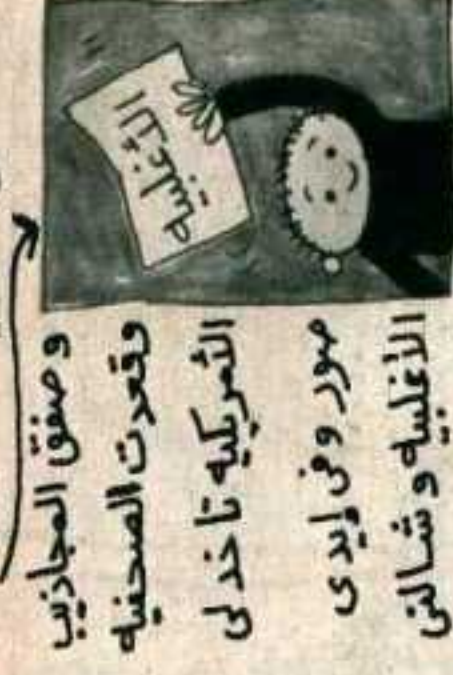 الأغلبيه
وصفق المجاذيب
وقعدت الصحفيه
الأمريكيه تاخد لى
صور وفى إيدى
الأغلبيه وشالنى